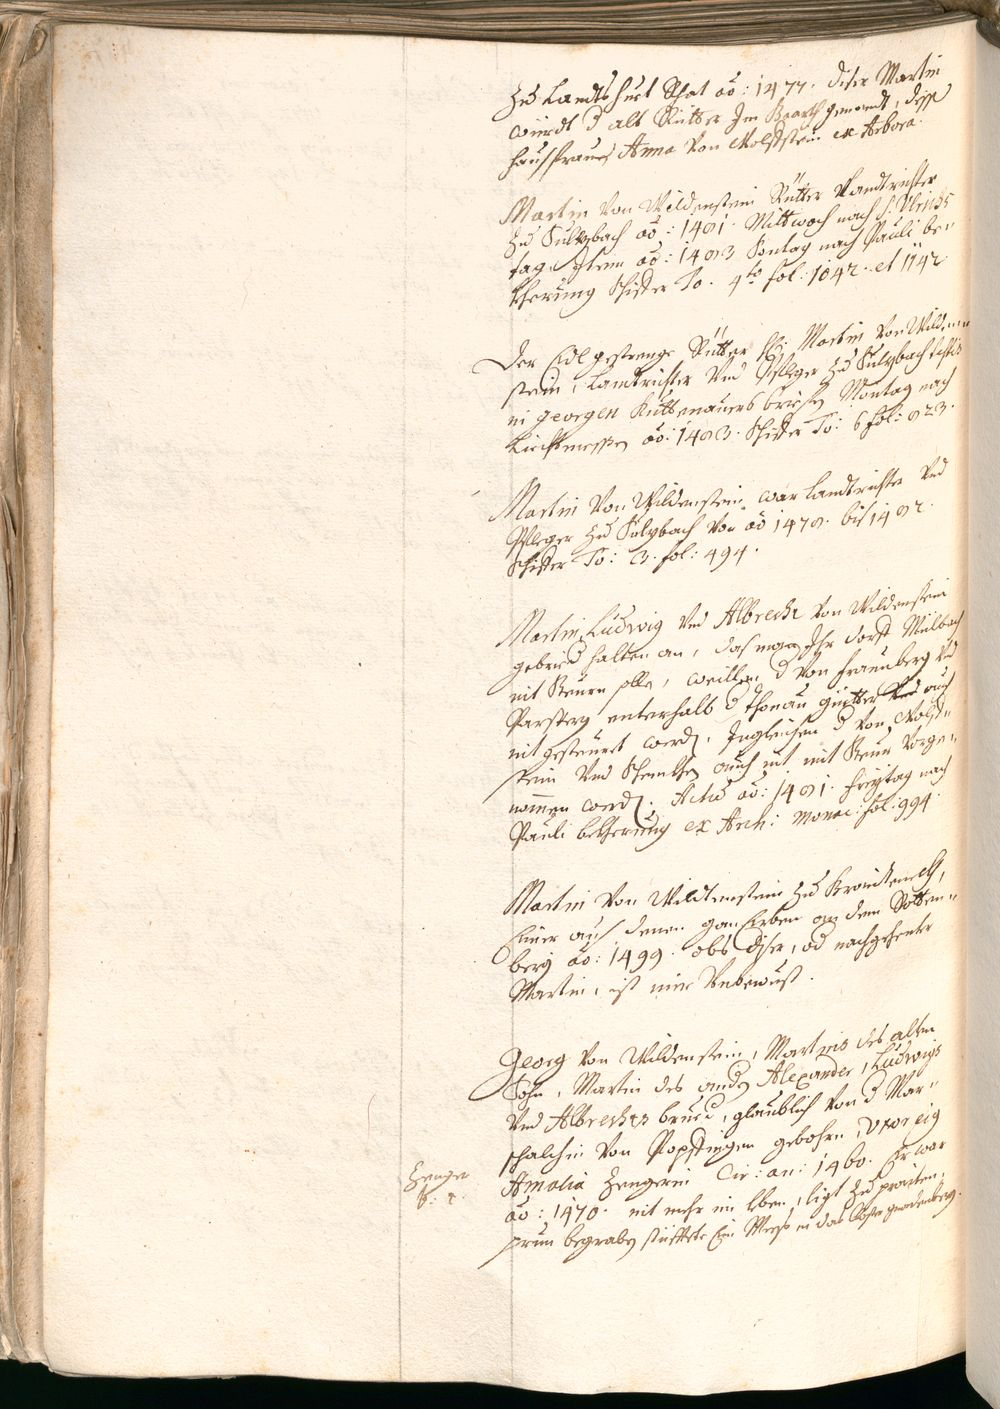 zu Landtshuet that aõ: 1477. diser Martin
würdt d alt Ritter Im Baarth genendt, dessen
haussfraue Anna von Wolfstein ex Arbora.
Martin von Wildenstein Ritter Landtrichter
zu Sulzbach aõ: 1481. Mittwoch nach S: Ulrichs
tag. Item aõ: 1483 Sontag nach Pauli be-
kherung Schifer To. 4to fol: 1042. et 1142.
Der Edl gestrenge Ritter H: Martin von Wilden-
stein, Landrichter vnd Pfleger zu Sulzbach
in georgen Küttenauers brief Montag nach
Liechtmessen aõ: 1483. Schifer To: 6 fol: 823.
Martin von Wildenstein war Landtrichter vnd
Pfleger zu Sulzbach von aõ 1478. bis 1482.
Schifer To: 3. fol: 494.
Martin, Ludwig vnd Albrecht von Wildenstein
gebried halten an, das man Ihr dorff Mülbach
nit Steurn solle, weillen d von fraunberg vnd
Parsberg unterhalb d thonau güetter auch
nit gesteurt werd. Ingleichen d von Wolf-
stein vnd Schenkhen auch nit mit Steur vorge-
nommen werd. Actu aõ: 1481. freytag nach
Pauli bekherung ex Arch: monac: fol: 994.
Martin von Wildtenstein zu
Einer auss denen ganErben an dem Rotten-
berg aõ: 1499. obs diser, od nachgehenter
Martin, ist mir Unbewust.
Georg von Wildenstein, Martinis des alten
Sohn, Martin des andn Alexander, Ludwigs
vnd Albrechts brued, glaublich von d Mar-
schalchin von Popffingen gebohrn, Uxor eig
Amalia Zengerin Cir: an: 1460. Er war
aõ: 1470. nit mehr im Leben, ligt zu praiten-
prun begraben stifftete Ein Mess in das Closter gnadenberg.
Zenger